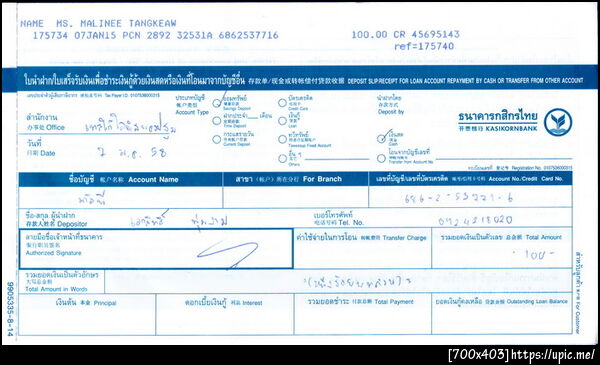 NAME MS. MALINEE TANGKEAW
175734 07JAN15 PCN 2892 32531A 6862537716 100.00 CR 45695143
ref=175740
ใบนำฝาก/ใบเสร็จรับเงินเพื่อชำระเงินกู้ด้วยเงินสดหรือเงินที่โอนมาจากบัญชีอื่น 存款单/现金或转帐偿付贷款收据 DEPOSIT SLIP/RECEIPT FOR LOAN ACCOUNT REPAYMENT BY CASH OR TRANSFER FROM OTHER ACCOUNT
ประเภทบัญชี 帐户类型 Account Type
ออมทรัพย์ Saving Deposit
บัตรเครดิต Credit Card
ฝากประจำ เดือน Time Deposit
เงินกู้ Loan
กระแสรายวัน Current Deposit
อื่น ๆ Others
นำฝากโดย 存款方式 Deposit by
เงินสด Cash
โอนจากบัญชีเลขที่ Transfer from Account No
ธนาคารกสิกรไทย
开泰银行 KASIKORNBANK
สำนักงาน 办事处 Office
วันที่ 日期 Date 7 ม.ค. 58
ทะเบียนเลขที่ 登记号 Registration No. 0107536000315
ชื่อบัญชี 帐户名称 Account Name
สาขา (帐户) 所在分行 For Branch
เลขที่บัญชี/เลขที่บัตรเครดิต Account No./Credit Card No.
มาลินี 686-2-53771-6
ชื่อ-สกุล ผู้นำฝาก 存款人姓名 Depositor
เบอร์โทรศัพท์ 电话号码 Tel. No.
ลายมือชื่อเจ้าหน้าที่ธนาคาร
银行职员签名
Authorized Signature
ค่าใช้จ่ายในการโอน 转帐费用 Transfer Charge
รวมยอดเงินเป็นตัวเลข 总金额 Total Amount
-100-
รวมยอดเงินเป็นตัวอักษร
大写总金额
Total Amount in Words
(หนึ่งร้อยบาทถ้วน)
เงินต้น 本金 Principal
ดอกเบี้ยเงินกู้ 利息 Interest
รวมยอดชำระ 付款总额 Total Payment
ยอดเงินกู้คงเหลือ 贷款余额 Outstanding Loan Balance
9905335-8-14
สำหรับลูกค้า For Customer
[700x403]https://upic.me/